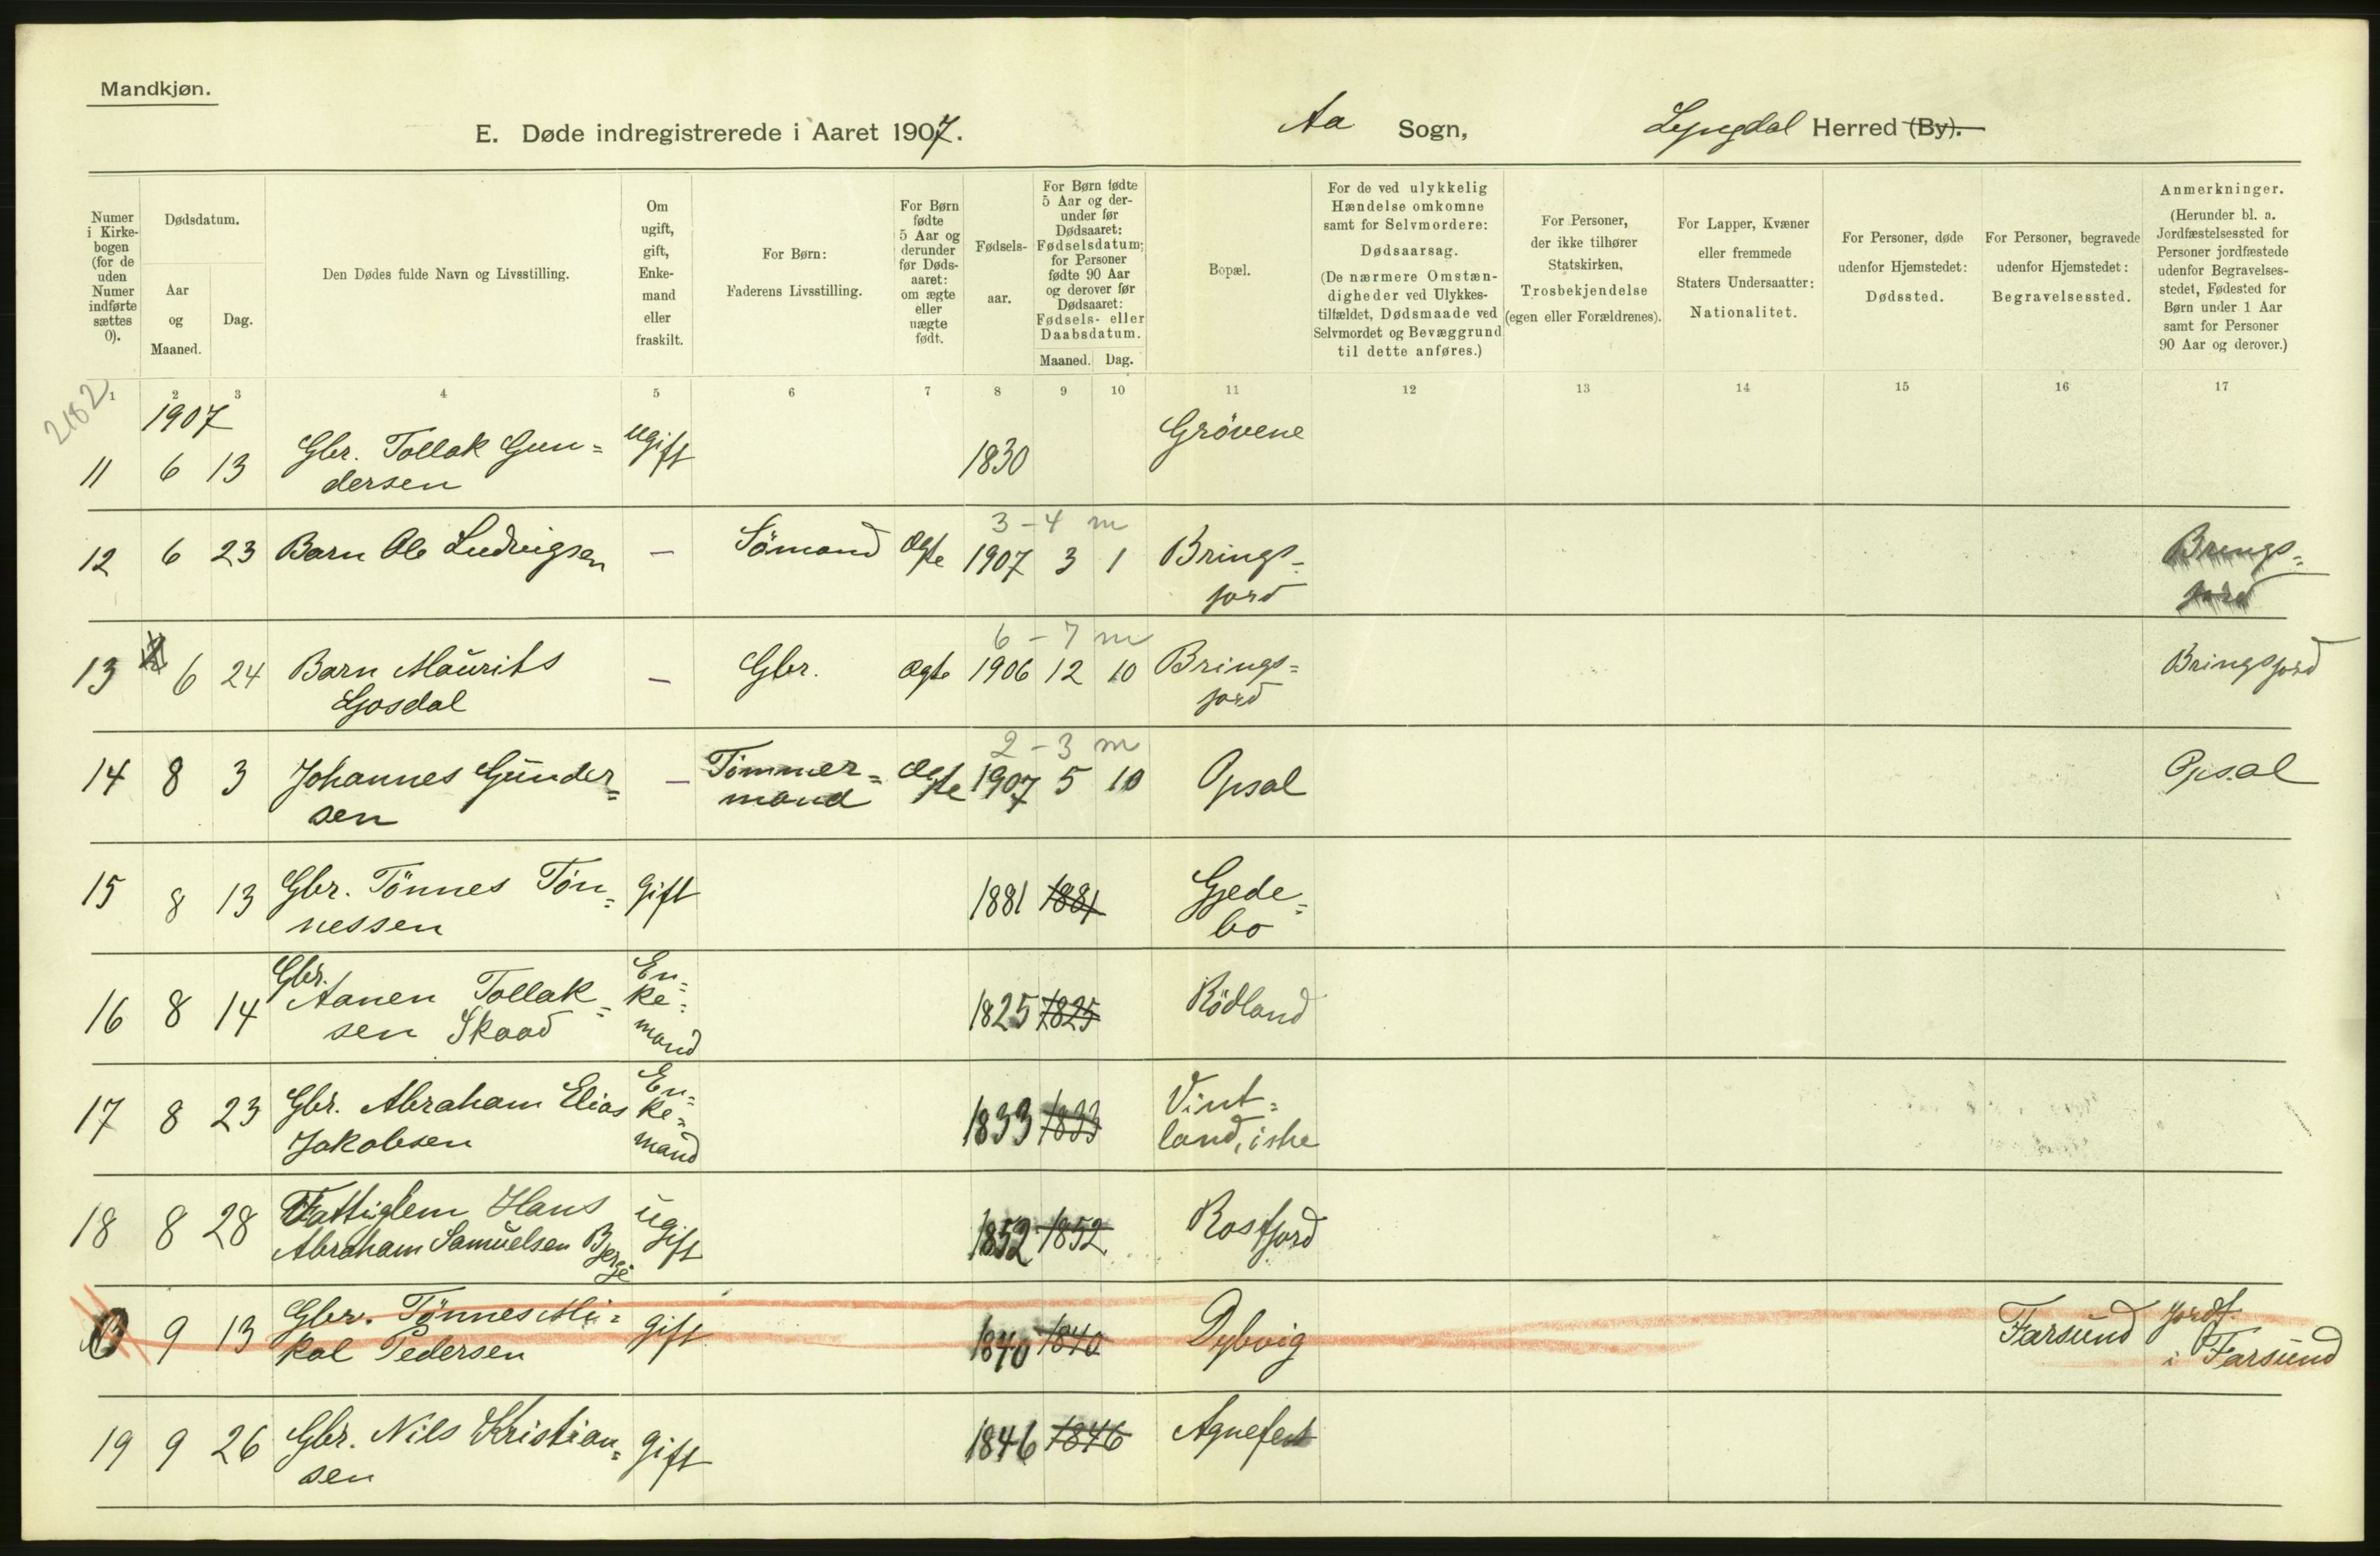 Mandkjøn.
E. Døde indregistrerede i Aaret 1907. Aa Sogn, Lyngdal Herred (By).
Numer i Kirkebogen (for de uden Numer indførte sættes 0).
Dødsdatum.
Aar og Maaned.
Dag.
Den Dødes fulde Navn og Livsstilling.
Om ugift, gift, Enkemand eller fraskilt.
For Børn:
Faderens Livsstilling.
For Børn fødte 5 Aar og derunder før Dødsaaret: om ægte eller uægte født.
Fødselsaar.
For Børn fødte 5 Aar og derunder før Dødsaaret: Fødselsdatum; for Personer fødte 90 Aar og derover før Dødsaaret: Fødsels- eller Daabsdatum.
Maaned. Dag.
Bopæl.
For de ved ulykkelig Hændelse omkomne samt for Selvmordere:
Dødsaarsag.
(De nærmere Omstændigheder ved Ulykkestilfældet, Dødsmaade ved Selvmordet og Bevæggrund til dette anføres.)
For Personer, der ikke tilhører Statskirken,
Trosbekjendelse
(egen eller Forældrenes).
For Lapper, Kvæner eller fremmede Staters Undersaatter:
Nationalitet.
For Personer, døde udenfor Hjemstedet:
Dødssted.
For Personer, begravede udenfor Hjemstedet:
Begravelsessted.
Anmerkninger.
(Herunder bl. a. Jordfæstelsessted for Personer jordfæstede udenfor Begravelsesstedet, Fødested for Børn under 1 Aar samt for Personer 90 Aar og derover.)
1 2 3 4 5 6 7 8 9 10 11 12 13 14 15 16 17
2182
1907
11 6 13 Gbr. Tollak Gun= ugift 1830 Grövene
dersen
3 - 4 m
12 6 23 Barn Ole Ludvigsen — Sömand Ægte 1907 3 1 Brings= Brings=
fjord fjord
6 - 7 m
13 6 24 Barn Maurits — Gbr. Ægte 1906 12 10 Brings= Bringsfjord
Gosdal fjord
2 - 3 m
14 8 3 Johannes Gunder= — Tömmer= Ægte 1907 5 10 Opsal Opsal
sen mand
15 8 13 Gbr. Tönnes Tön= gift 1881 1881 Gjede=
nessen bo
16 8 14 Gbr. Aanen Tollak= En=ke=mand 1825 1825 Rödland
sen Skaad
17 8 23 Gbr. Abraham Elias En=ke=mand 1833 1833 Vint=
Jakobsen land, ishe
18 8 28 Fattiglem Hans ugift 1852 1852 Rosfjord
Abraham Samuelsen Berge
9 13 Gbr. Tönnes Mi= gift 1840 1840 Dybvig Farsund jordf.
kal Pedersen i Farsund
19 9 26 Gbr. Nils Kristian= gift 1846 1846 Agnefest
sen